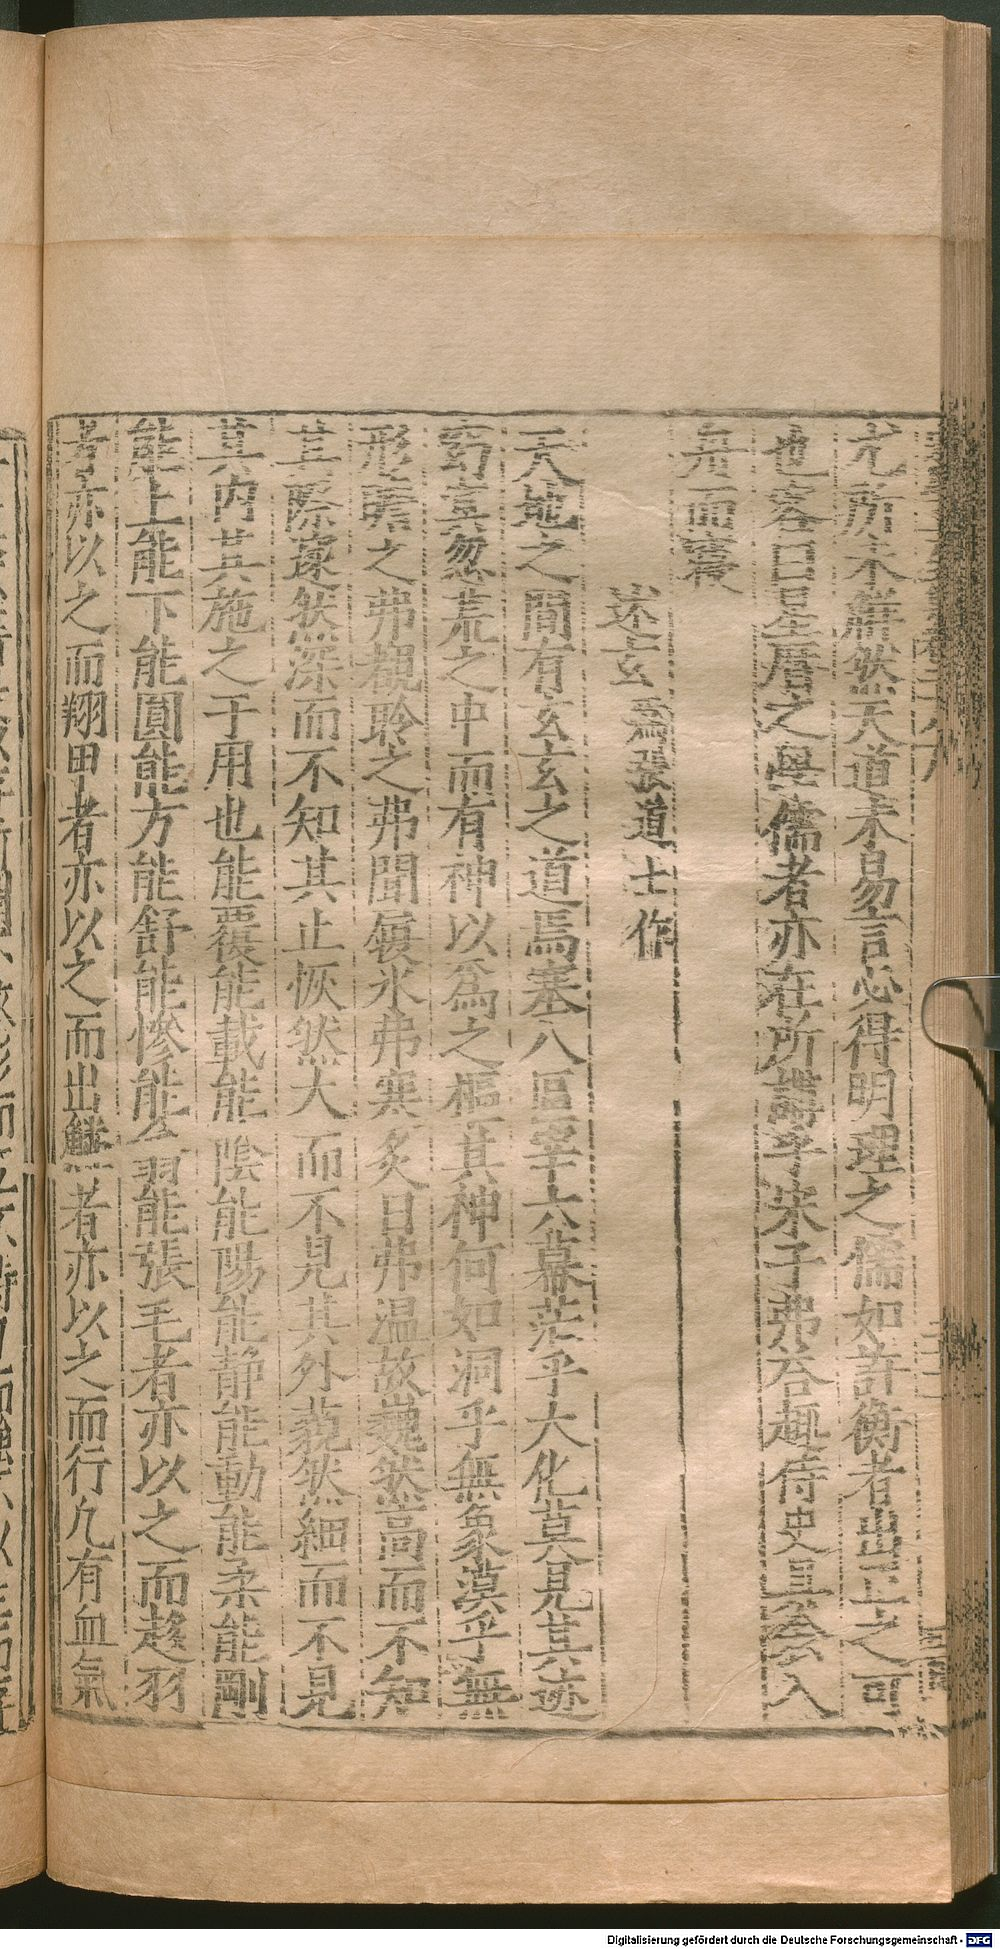 尤所未講然天道未易言必得明理之儒如許衡者出正之可
也客曰星曆之學儒者亦在所講乎宋子弗答趣侍史具
而書
述玄爲張道士作
天地之間有玄玄之道焉塞八區宰六幕茫乎大化莫見其迹
窈冥忽荒之中而有神以爲之樞其神何如洞乎無象漠乎無
形瞻之弗覩聆之弗聞履氷弗寒炙日弗温故巍然高而不知
其際邃然深而不知其止恢然大而不見其外藐然細而不見
其内其施之于用也能覆能載能陰能陽能静能動能柔能剛
能上能下能圓能方能舒能慘能翕能張毛者亦以之而趍羽
者亦以之而翔甲者亦以之而出鱗者亦以之而行凡有血氣
Digitalisierung gefördert durch die Deutsche Forschungsgemeinschaft - DFG